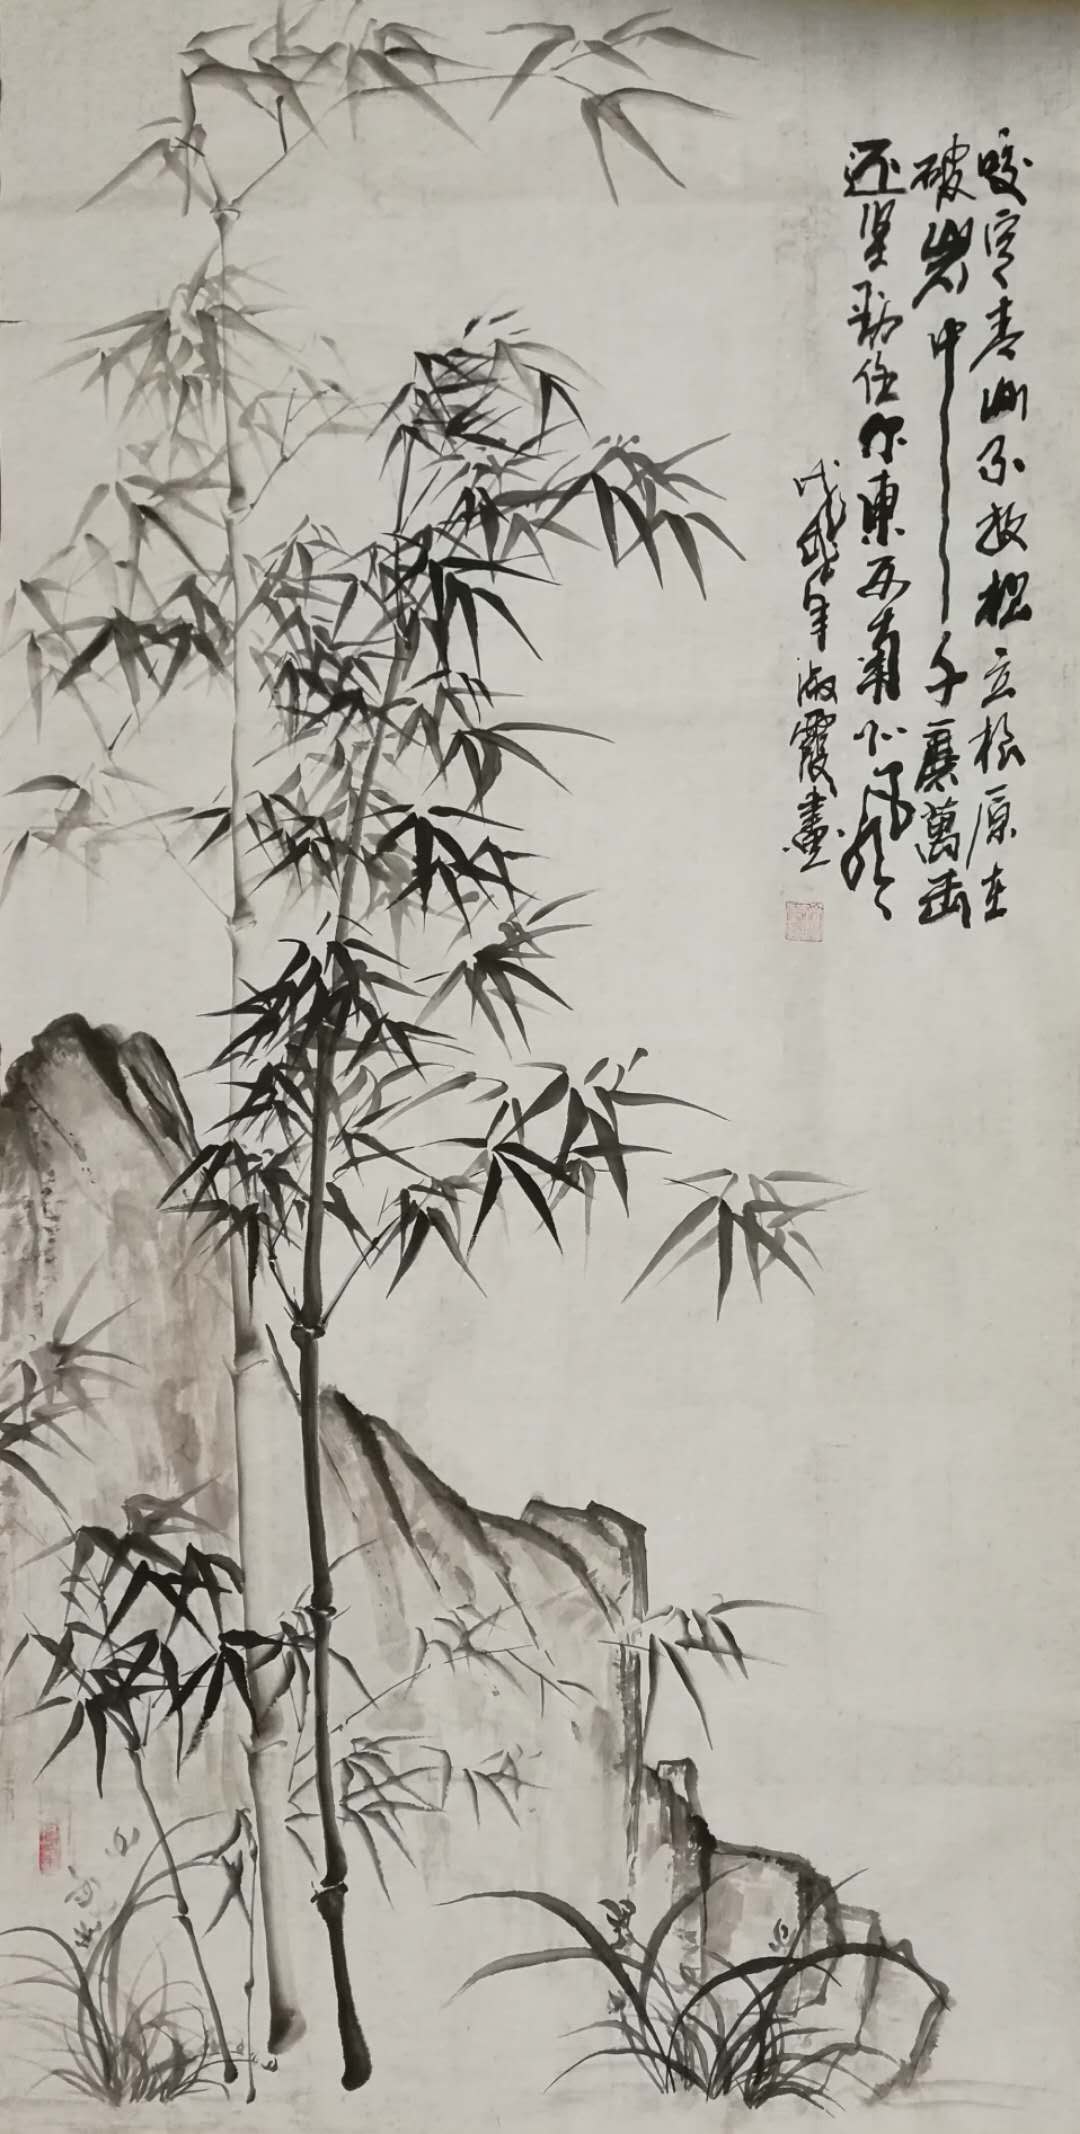 咬定青山不放松立根原在
破岩中千磨萬击
还坚劲任你東西南北风
戊戌年淑霞畫